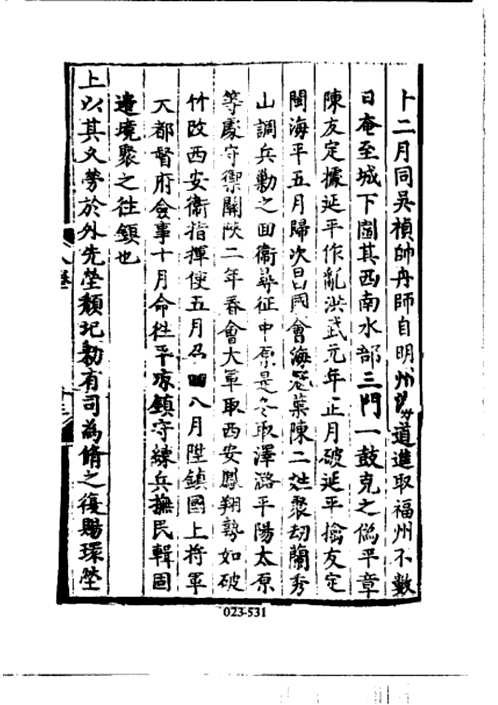 卜二月同吳禎帥舟師自明州海道進取福州不數
日奄至城下圍其西南水部三門一鼓克之僞平章
陳友定據延平作亂洪武元年正月破延平擒友定
閩海平五月歸次昌國會海寇葉陳二姓聚刼蘭秀
山調兵勦之回衛尋征中原是冬取澤潞平陽太原
等處守禦關陜二年春會大軍取西安鳳翔勢如破
竹改西安衛指揮使五月召回八月陞鎮國上將軍
大都督府僉事十月命往平凉鎮守練兵撫民輯固
邊境聚之往鎮也
上以其久勞於外先塋頹圮勅有司為脩之復賜環塋
023-531